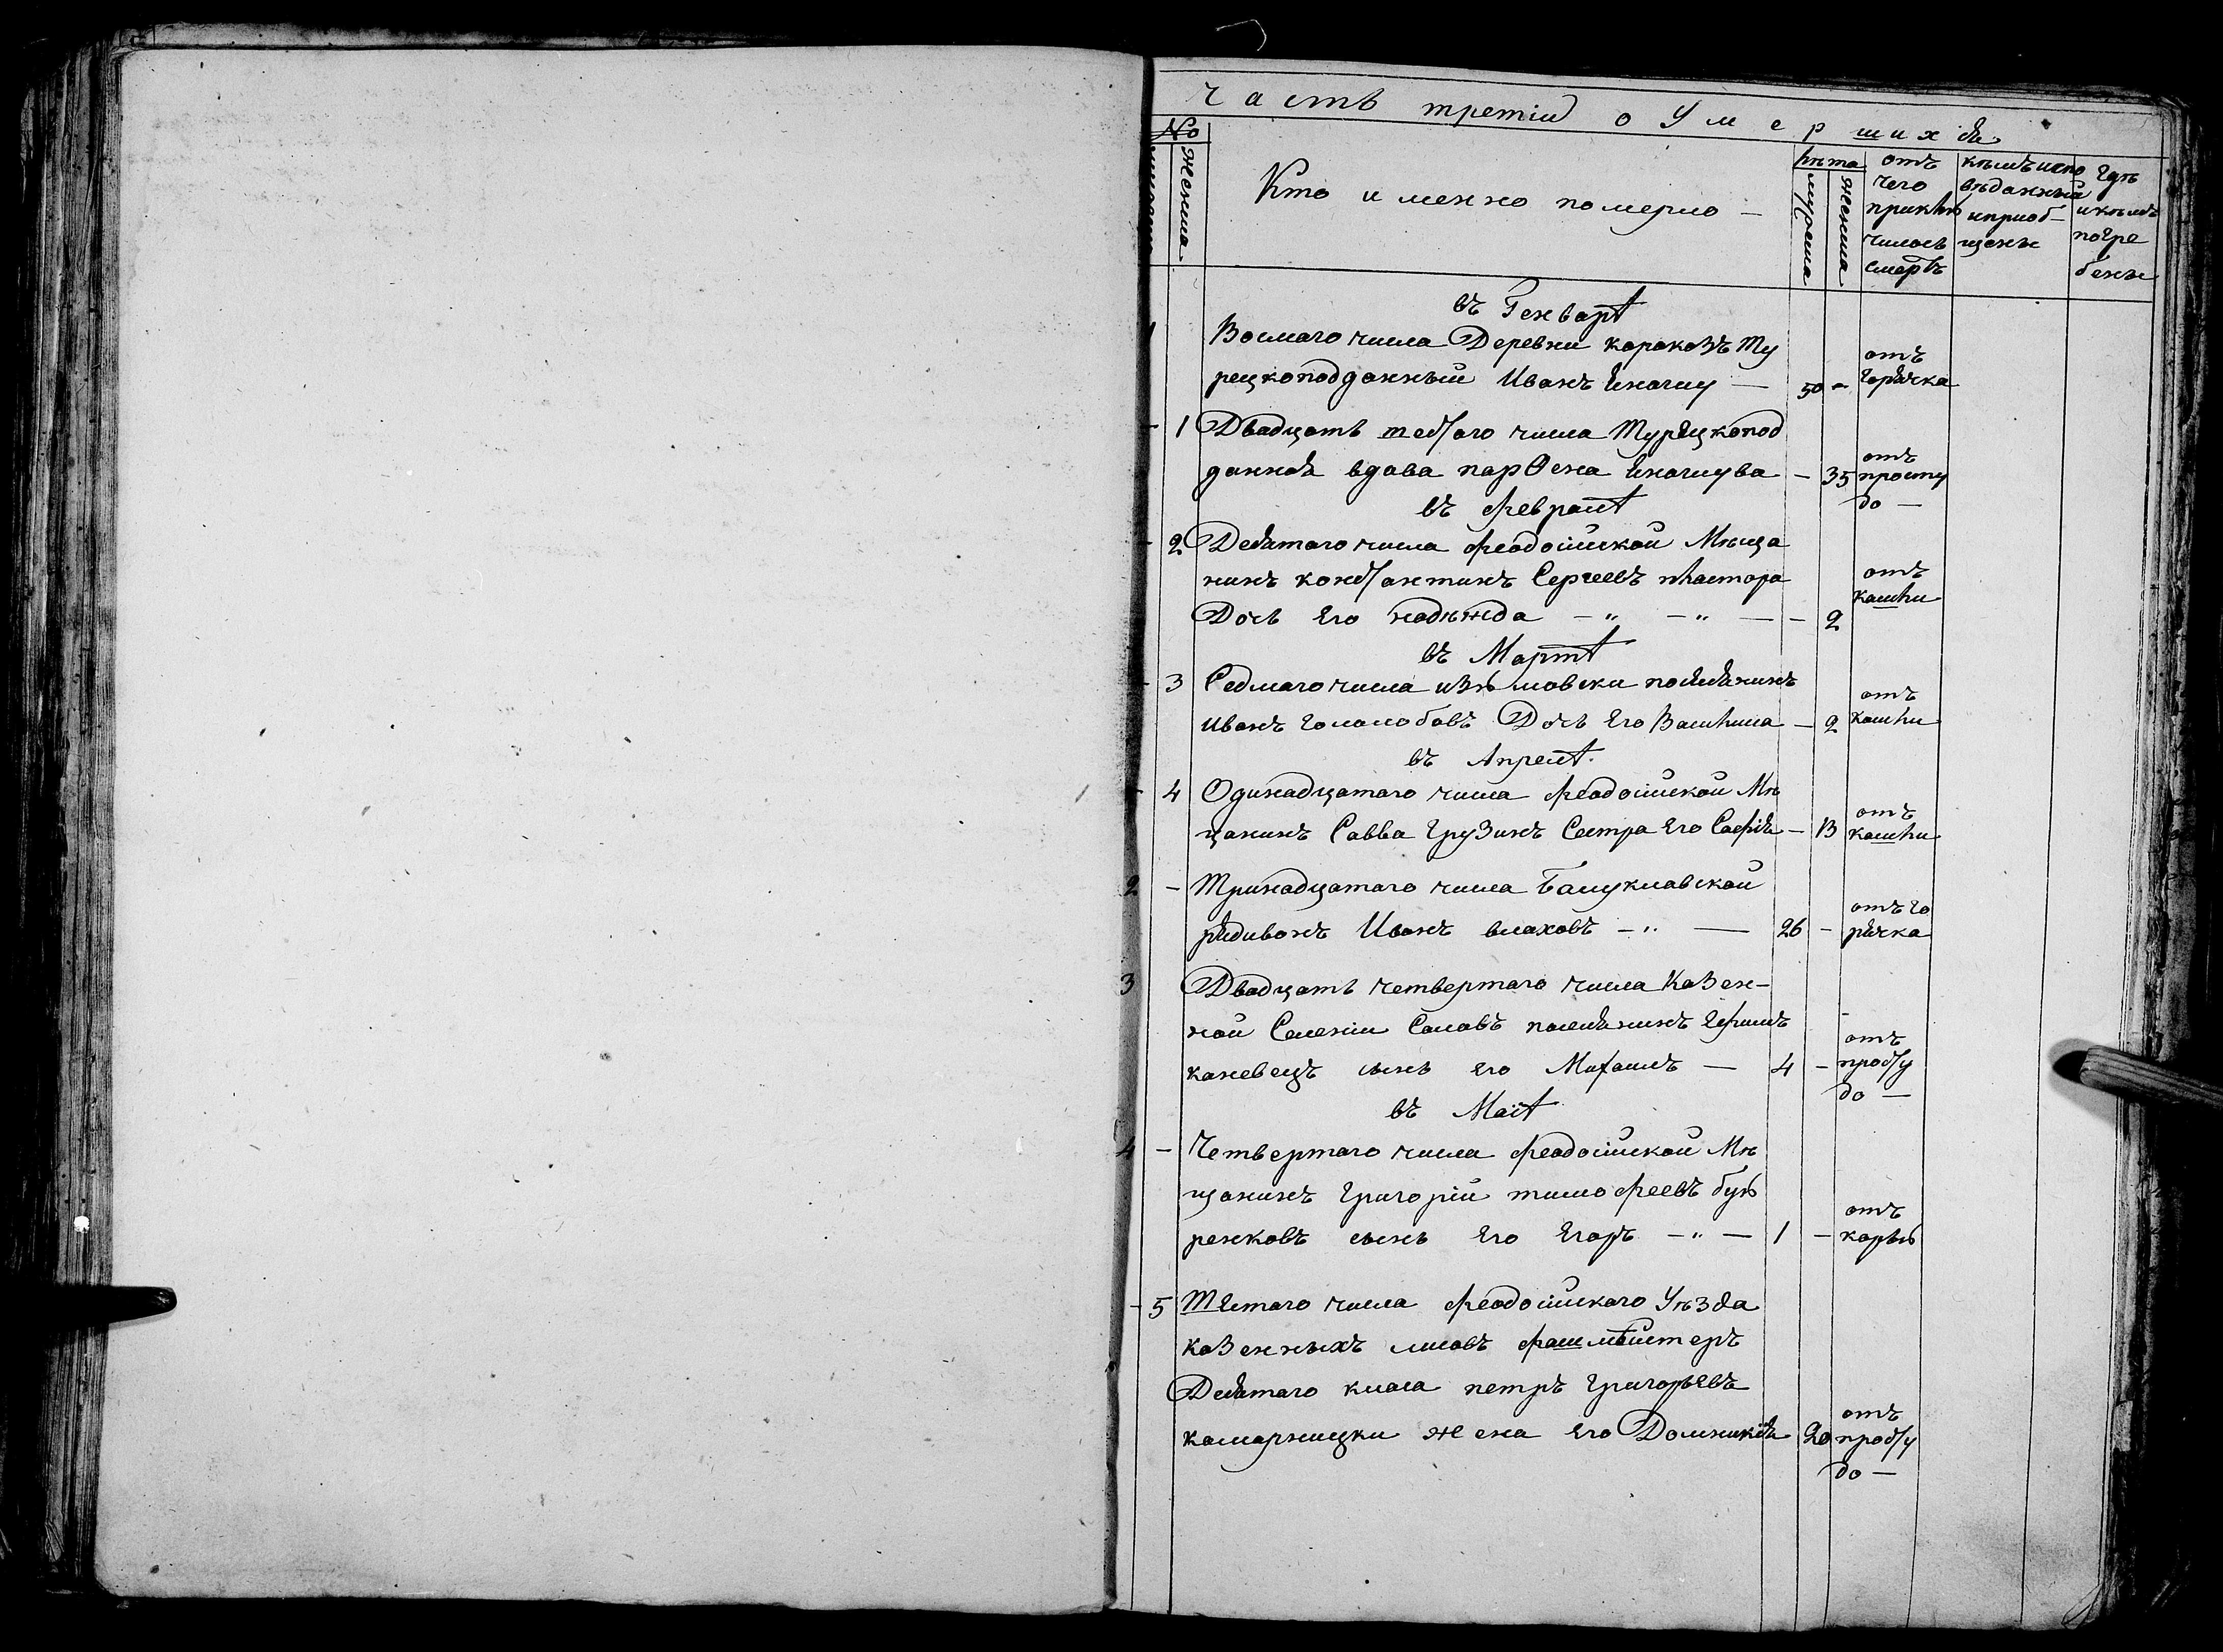 Часть третія о Умершихъ
№
Женска
Кто именно померло —
лѣта
мужска
женска
отъ чего приклю чилось смерть
кѣмъ испо вѣданны и приоб- щены
Гдѣ и кѣмъ погре бены
въ Генварѣ
1 Восмаго числа Деревни каракозъ Ту
рецкоподданный Иванъ Еналчу — 50 - отъ горячка
- 1 Двадцать шестаго числа Турецкопод
данная вдава парѳена — 35 отъ просту
до —
въ февралѣ
- 2 Девятаго числа феодосійской Мѣща
нинъ константинъ Сергеевъ
Дочь Его надѣжда — „ — „ — - 2 отъ кашли
въ Мартѣ
- 3 Седмаго числа поселянинъ
Иванъ голопобовъ Дочь Его Василиса — 2 отъ кашли
въ Апрелѣ
- 4 Одинадцатаго числа феодосійской Мѣ
щанинъ Савва Грузинъ Сестра Его Софія — 13 отъ кашли
2 — Тринадцатаго числа Балуклавской
рядивонъ Иванъ влаховъ — „ — 26 - отъ го рячка
3 Двадцать четвертаго числа Казен-
ной Селеніи Салавъ поселянинъ Ефимъ
каневецъ сынъ его Михаилъ — 4 - отъ просту
до —
въ Маіѣ
4 — Четвертаго числа феодосійской Мѣ
щанинъ Григорій тимофеевъ буѣ
ренковъ сынъ Его Егоръ — „ — 1 - отъ корьѣ
- 5 Шестаго числа феодосійскаго Уѣзда
казенныхъ лисовъ фашмѣйстеръ
Девятаго класа петръ Григорьевъ
камарницки жена Его Домникія 20 отъ просту
до —